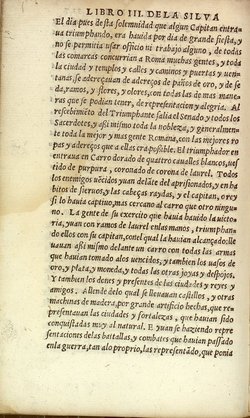 LIBRO III. DE LA SILVA
El dia pues desta solemnidad que algun Capitan entra
ua triumphando, era hauida por dia de grande fiesta, y
no se permitia usar officio ni trabajo alguno, de todas
las comarcas concurrian a Roma muchas gentes, y toda
la ciudad y templos y calles y caminos y puertas y uen
tanas, se adereçauan de adereços de paños de oro, y de se
da, ramos, y flores, y olores, con todas las mas mane
ras que se podian tener, de representacion y alegria. Al
recebimiẽto del Triumphante salia el Senado y todos los
Sacerdotes, y assi mismo toda la nobleza, y generalmen
te toda la mejor y mas gente Romana, con las mejores ro
pas y adereços que a ellos era possible. El triumphador en
traua en Carro dorado de quatro cauallos blancos, uest
rido de purpura, coronado de corona de laurel. Todos
los enemigos uẽcidos yuan delãte del aprisionados, y en ha
bitos de sieruos, y las cabeças raydas, y el capitan, o rey
si lo hauia captiuo, mas cercano al carro que otro ningu-
no. La gente de su exercito que hauia hauido la uicto
ria, yuan con ramos de laurel en las manos, triumphan
do ellos con su capitan, con el qual la hauian alcançado: lle
uauan assi mismo delante un carro con todas las armas
que hauian tomado a los uencidos, y tambien los uasos de
oro, y plata, y moneda, y todas las otras joyas y despojos.
Y tambien los dones y presentes de las ciudades y reyes y
amigos. Allende de lo qual se lleuauan castillos, y otras
machinas de madera, por grande artificio hechas, que re
presentauan las ciudades y fortalezas, que hauian sido
conquistadas muy al natural. E yuan se haziendo repre
sentaciones das battallas, y combates que hauian passado
en la guerra, tan al o proprio, las representado, que ponia